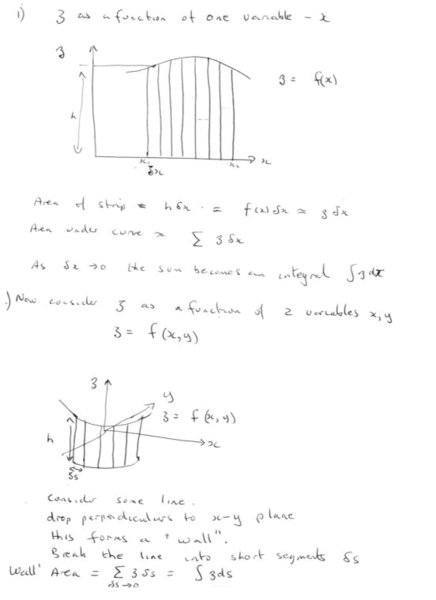 i) z as a function of one variable - x
z
z = f(x)
h
x₁ x₂ x
δx
Area of strip = hδx = f(x)δx = zδx
Area under curve ≈ ∑ zδx
As δx → 0 the sum becomes an integral ∫zdx
.) Now consider z as a function of 2 variables x, y
z = f(x,y)
z
y
z = f(x,y)
h
x
δs
consider some line.
drop perpendiculars to x-y plane
this forms a "wall".
Break the line into short segments δs
Wall' Area = ∑ zδs = ∫zds
δs→0